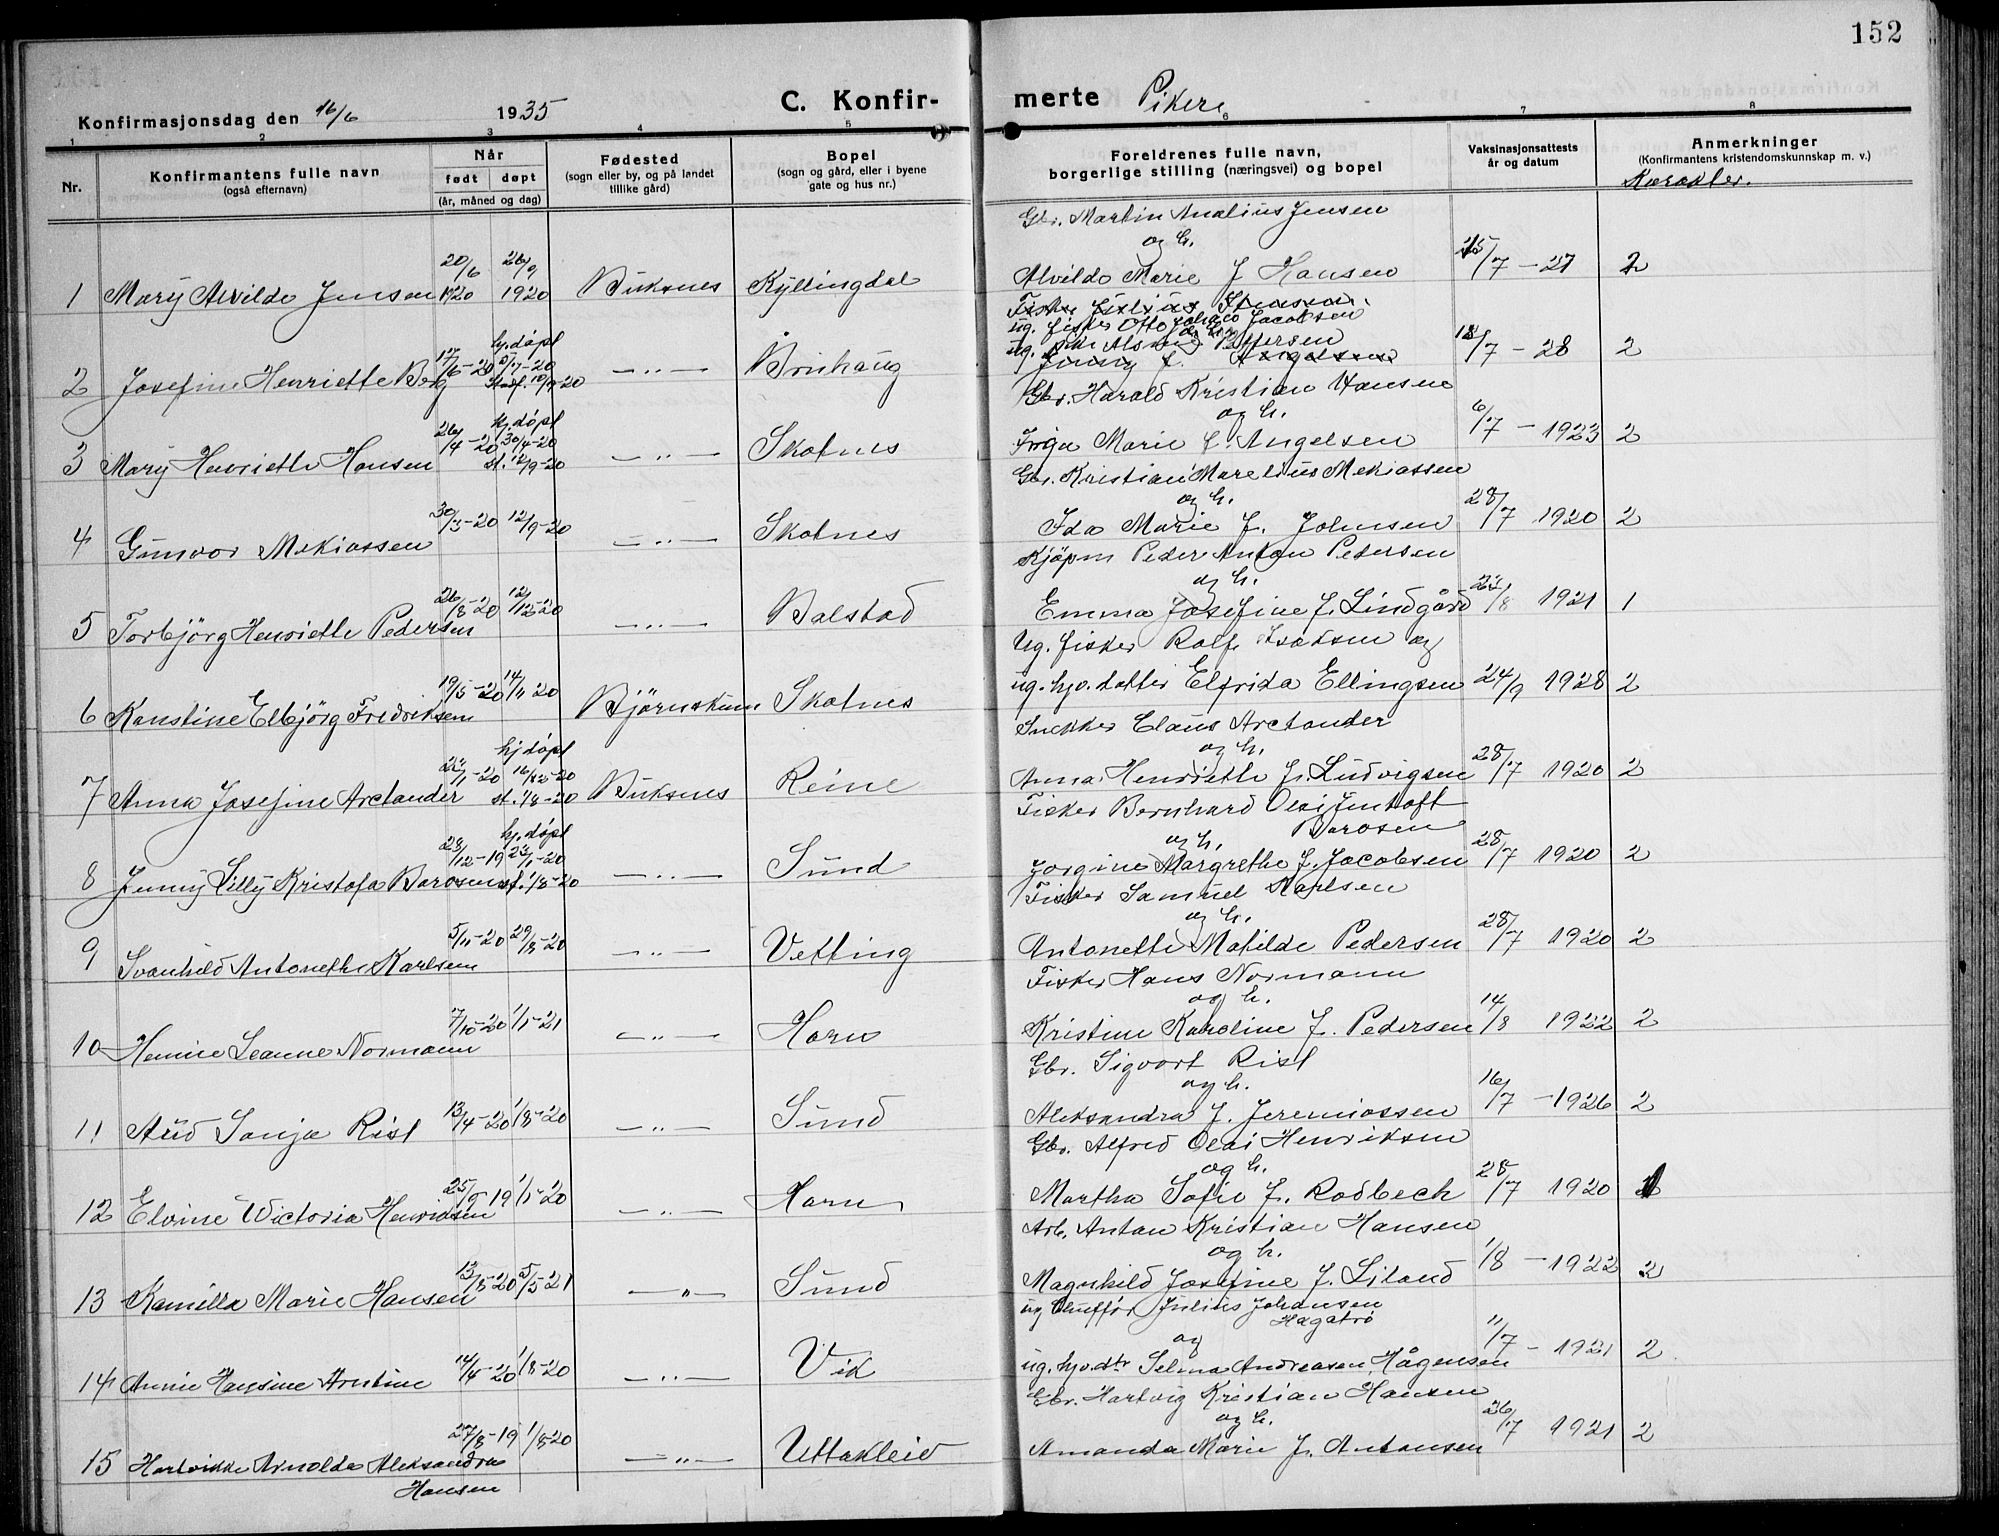 152
Konfirmasjonsdag den 16/6 1935
C. Konfir- merte Piker
1 2 3 4 5 6 7 8
Nr.
Konfirmantens fulle navn
(også efternavn)
Når
født døpt
(år, måned og dag)
Fødested
(sogn eller by, og på landet
tillike gård)
Bopel
(sogn og gård, eller i byene
gate og hus nr.)
Foreldrenes fulle navn,
borgerlige stilling (næringsvei) og bopel
Vaksinasjonsattests
år og datum
Anmerkninger
(Konfirmantens kristendomskunnskap m. v.)
Karakter.
Gbr. Martin Analius Jensen
og h.
1 Mary Alvilde Jensen 20/6 1920 26/9 1920 Buksnes Kyllingdal Alvilde Marie f Hansen 25/7 - 27 2
ug. fisker Otto Johan Jacobsen
og
2 Josefine Henriette Berg 17/6-20 hj. døpt 5/7-20 Stadf. 19/9-20 -„- Brinhaug Pettersen 18/7 - 28 2
Gbr. Harald Kristian Hansen
og h.
3 Mary Henriette Hansen 26/4-20 hj. døpt 30/4-20 st. 12/9-20 -„- Skotnes Inga Marie f. Angelsen 6/7 - 1923 2
Gbr. Kristian Marelius Mekiassen
og h.
4 Gunvor Mekiassen 30/3-20 12/9-20 -„- Skotnes Ida Marie f. Johnsen 28/7 1920 2
Kjøpm Peder Anton Pedersen
og h.
5 Torbjörg Henriette Pedersen 26/8-20 12/12-20 -„- Balstad Emma Josefine f. Lindgård 22/8 1921 1
Ug. fisker Rolf Isaksen og
6 Konstine Elbjörg Fredriksen 19/5-20 14/11 20 Björnskinn Skotnes ug. hjv. datter Elfrida Ellingsen 24/9 1928 2
Snekker Claus Arctander
og h.
7 Anna Josefine Arctander 22/11-20 hj døpt 16/12-20 st. 1/8-20 Buksnes Reine Anna Henriette f. Ludvigsen 28/7 1920 2
Fisker Bernhard Olai Jentoft
Barosen
og h.
8 Jenny Lilly Kristofa Barosen 28/12-19 hj. døpt 22/1-20 st. 1/8-20 -„- Sund Jorgine Margrethe f. Jacobsen 28/7 1920 2
Fisker Samuel Karlsen
og h.
9 Svanhild Antonette Karlsen 5/11-20 29/8-20 -„- Vetting Antonette Matilde Pedersen 28/7 1920 2
Fisker Hans Normann
og h.
10 Hennie Leanne Normann 7/10-20 1/1-21 -„- Horn Kristine Karoline f. Pedersen 14/8 1922 2
Gbr. Sigvart Rist
og h.
11 Aud Sonja Rist 13/4-20 1/8-20 -„- Sund Aleksandra f. Jeremiassen 16/7 - 1926 2
Gbr. Alfred Olai Henriksen
og h.
12 Elvine Victoria Henriksen 25/9-19 1/1-20 -„- Horn Martha Sofie f. Rodbech 28/7 1920 1
Arb. Anton Kristian Hansen
og h.
13 Kamilla Marie Hansen 13/8-20 5/5-21 -„- Sund Magnhild Josefine f. Liland 1/8 - 1922 2
ug Chuffør Julius Johansen
Hagatrø
og
14 Annie Hansine Arntine 14/4-20 1/8-20 -„- Vik ug. hjv. dtr Selma Andreasen Hågensen 11/7 - 1921 2
Gbr. Hartvig Kristian Hansen
og h.
15 Hartvikke Arnolda Aleksandra 27/8-19 1/8-20 -„- Uttakleiv Amanda Marie f. Antonsen 26/7 1921 2
Hansen